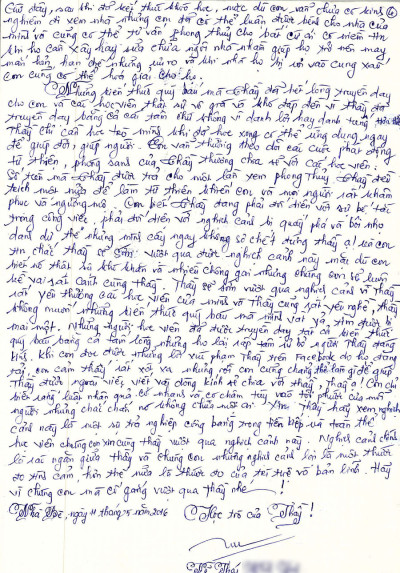 Giờ đây, sau khi đã kết thúc khóa học, mặc dù con vẫn chưa có kinh
nghiệm đi xem nhà nhưng con đã có thể luận được bệnh cho nhà của
mình và cũng có thể tư vấn phong thủy cho bất cứ ai có niềm tin
khi họ cần xây hay sửa chữa ngôi nhà nhằm giúp họ trở nên may
mắn hơn, hạn chế những rủi ro và khi nhà họ bị rơi vào cung xấu
con cũng có thể hoá giải cho họ.
Những kiến thức quý báu mà Thầy đã hết lòng truyền dạy
cho con và các học viên thật sự vô giá và khó đáp đền vì thầy đã
truyền dạy bằng cả cái tâm chứ không vì danh lợi hay danh tiếng
Thầy chỉ cần học trò mình khi đã học xong có thể ứng dụng ngay
để giúp đời, giúp người. Con vẫn thường theo dõi các cuộc phát động
từ thiện, phóng sanh của Thầy thường chia sẻ với các học viên.
Số tiền mà Thầy được trả cho mỗi lần xem phong thủy Thầy đều
trích một nửa để làm từ thiện khiến con và mọi người rất khâm
phục và ngưỡng mộ. Con biết Thầy đang phải đối diện với sự bế tắc
trong công việc, phải đối diện với nghịch cảnh bị quấy phá và bôi nhọ
danh dự thế nhưng mình cây ngay không sợ chết đứng thầy ạ! và con
tin chắc thầy sẽ sớm vượt qua được nghịch cảnh này mặc dù con
biết nó thật sự khó khăn và nhiều chông gai nhưng chúng con sẽ luôn
kề vai sát cánh cùng thầy. Thầy sẽ sớm vượt qua nghịch cảnh vì Thầy
rất yêu thương các học viên của mình và Thầy cũng rất yêu nghề, thầy
không muốn những kiến thức quý báu mà mình vất vả tìm được bị
mai một. Những người học viên đã được truyền dạy tất cả kiến thức
quý báu bằng cả tấm lòng nhưng họ lại rắp tâm từ bỏ người Thầy đáng
kính. Khi con đọc được những lời xúc phạm Thầy trên Facebook do họ đăng
tải, con cảm thấy rất xót xa nhưng rồi con cũng chẳng thể làm gì để giúp
Thầy được ngoài việc viết vài dòng kính sẻ chia với thầy, thầy ạ! Con chỉ
biết rằng luật nhân quả có nhanh và có chậm tùy vào tội phước của mỗi
người nhưng chắc chắn nó không chừa một ai. Xin Thầy hãy xem nghịch
cảnh này là một sự trả nghiệp công bằng trong tiền kiếp và toàn thể
học viên chúng con xin cùng thầy vượt qua nghịch cảnh này. Nghịch cảnh chính
là rào ngăn giữa thầy và chúng con nhưng nghịch cảnh lại là một thước
đo tình cảm, hơn thế nữa là thước đo của trí tuệ và bản lĩnh. Hãy
vì chúng con mà cố gắng vượt qua thầy nhé!
ngày 11 tháng 5 năm 2016
Học trò của Thầy!